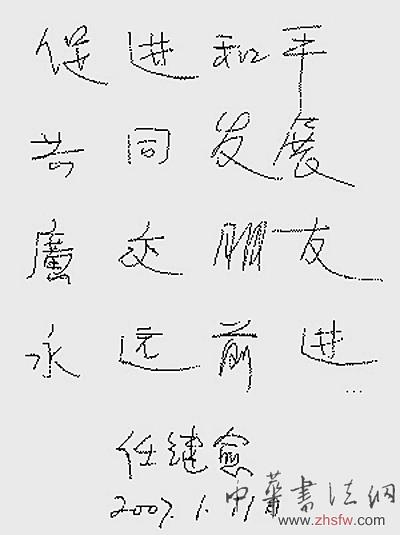 促进和平
共同发展
廣交朋友
永远前进
...
任继愈
2007.1.
中華書法網
www.zhsfw.com